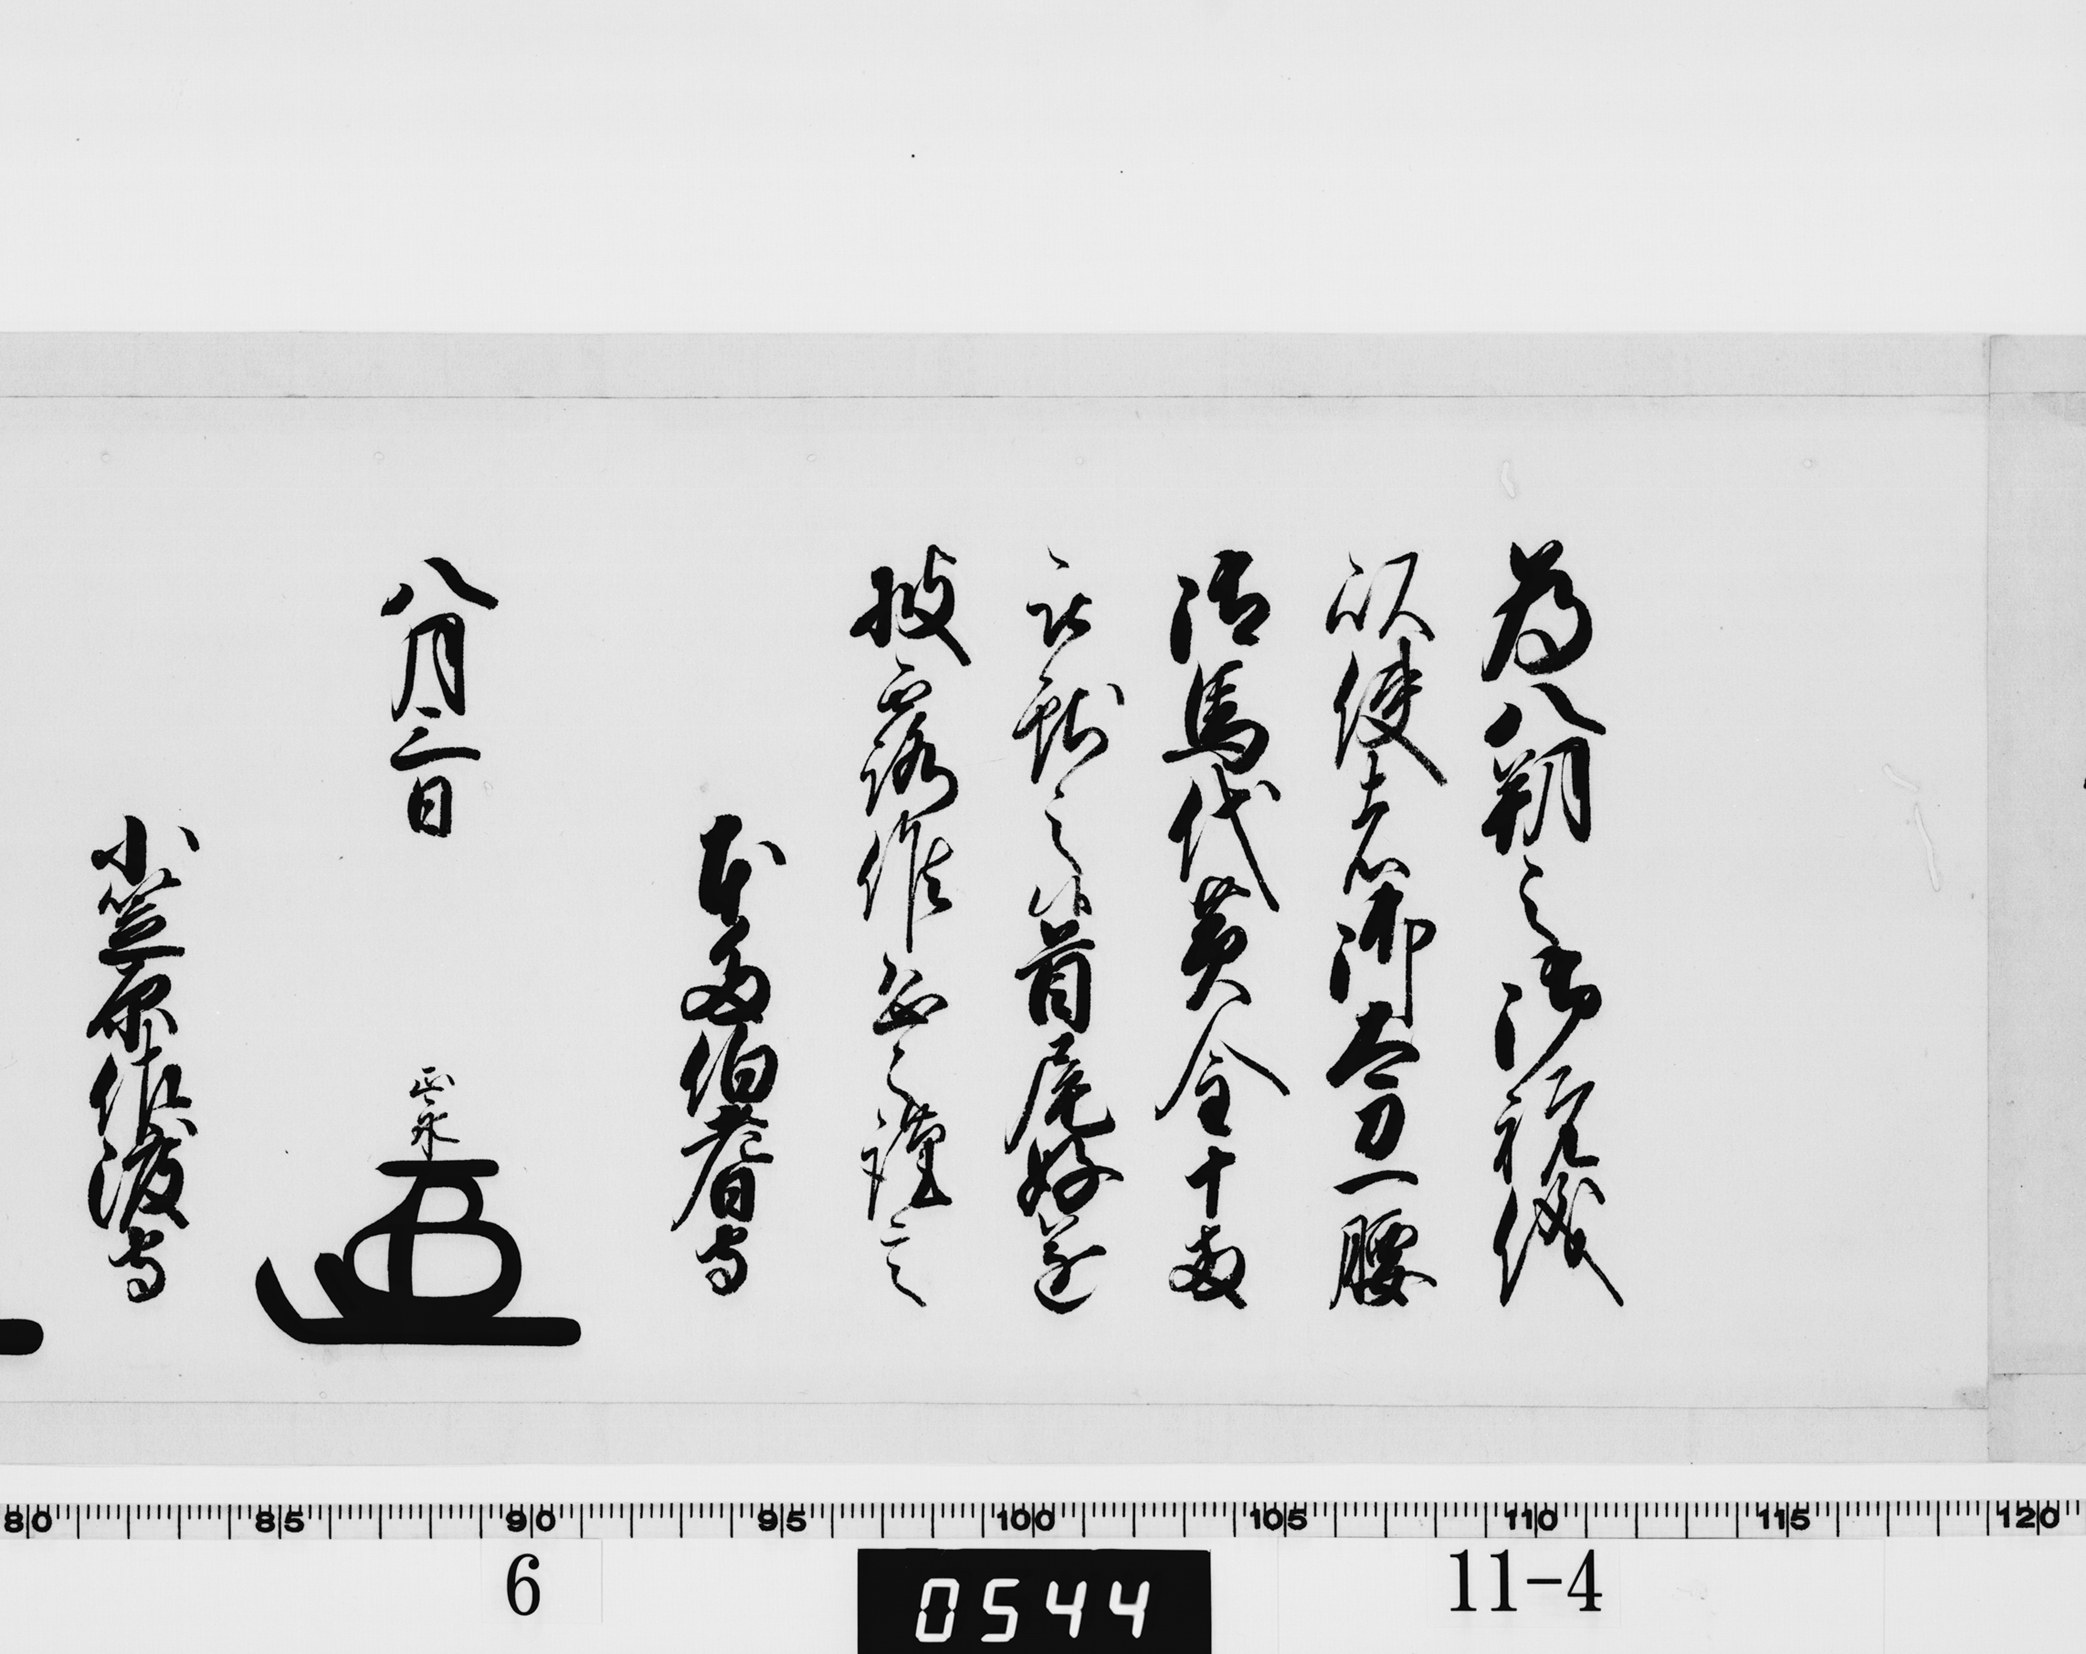 為八朔之御祝儀
以使者御太刀一腰
御馬代黄金十両
被献之候首尾好遂
披露候恐々謹言
本多伯耆守
八月三日
正永
小笠原佐渡守
80 85 90 95 100 105 110 115 120
6
0544
11-4